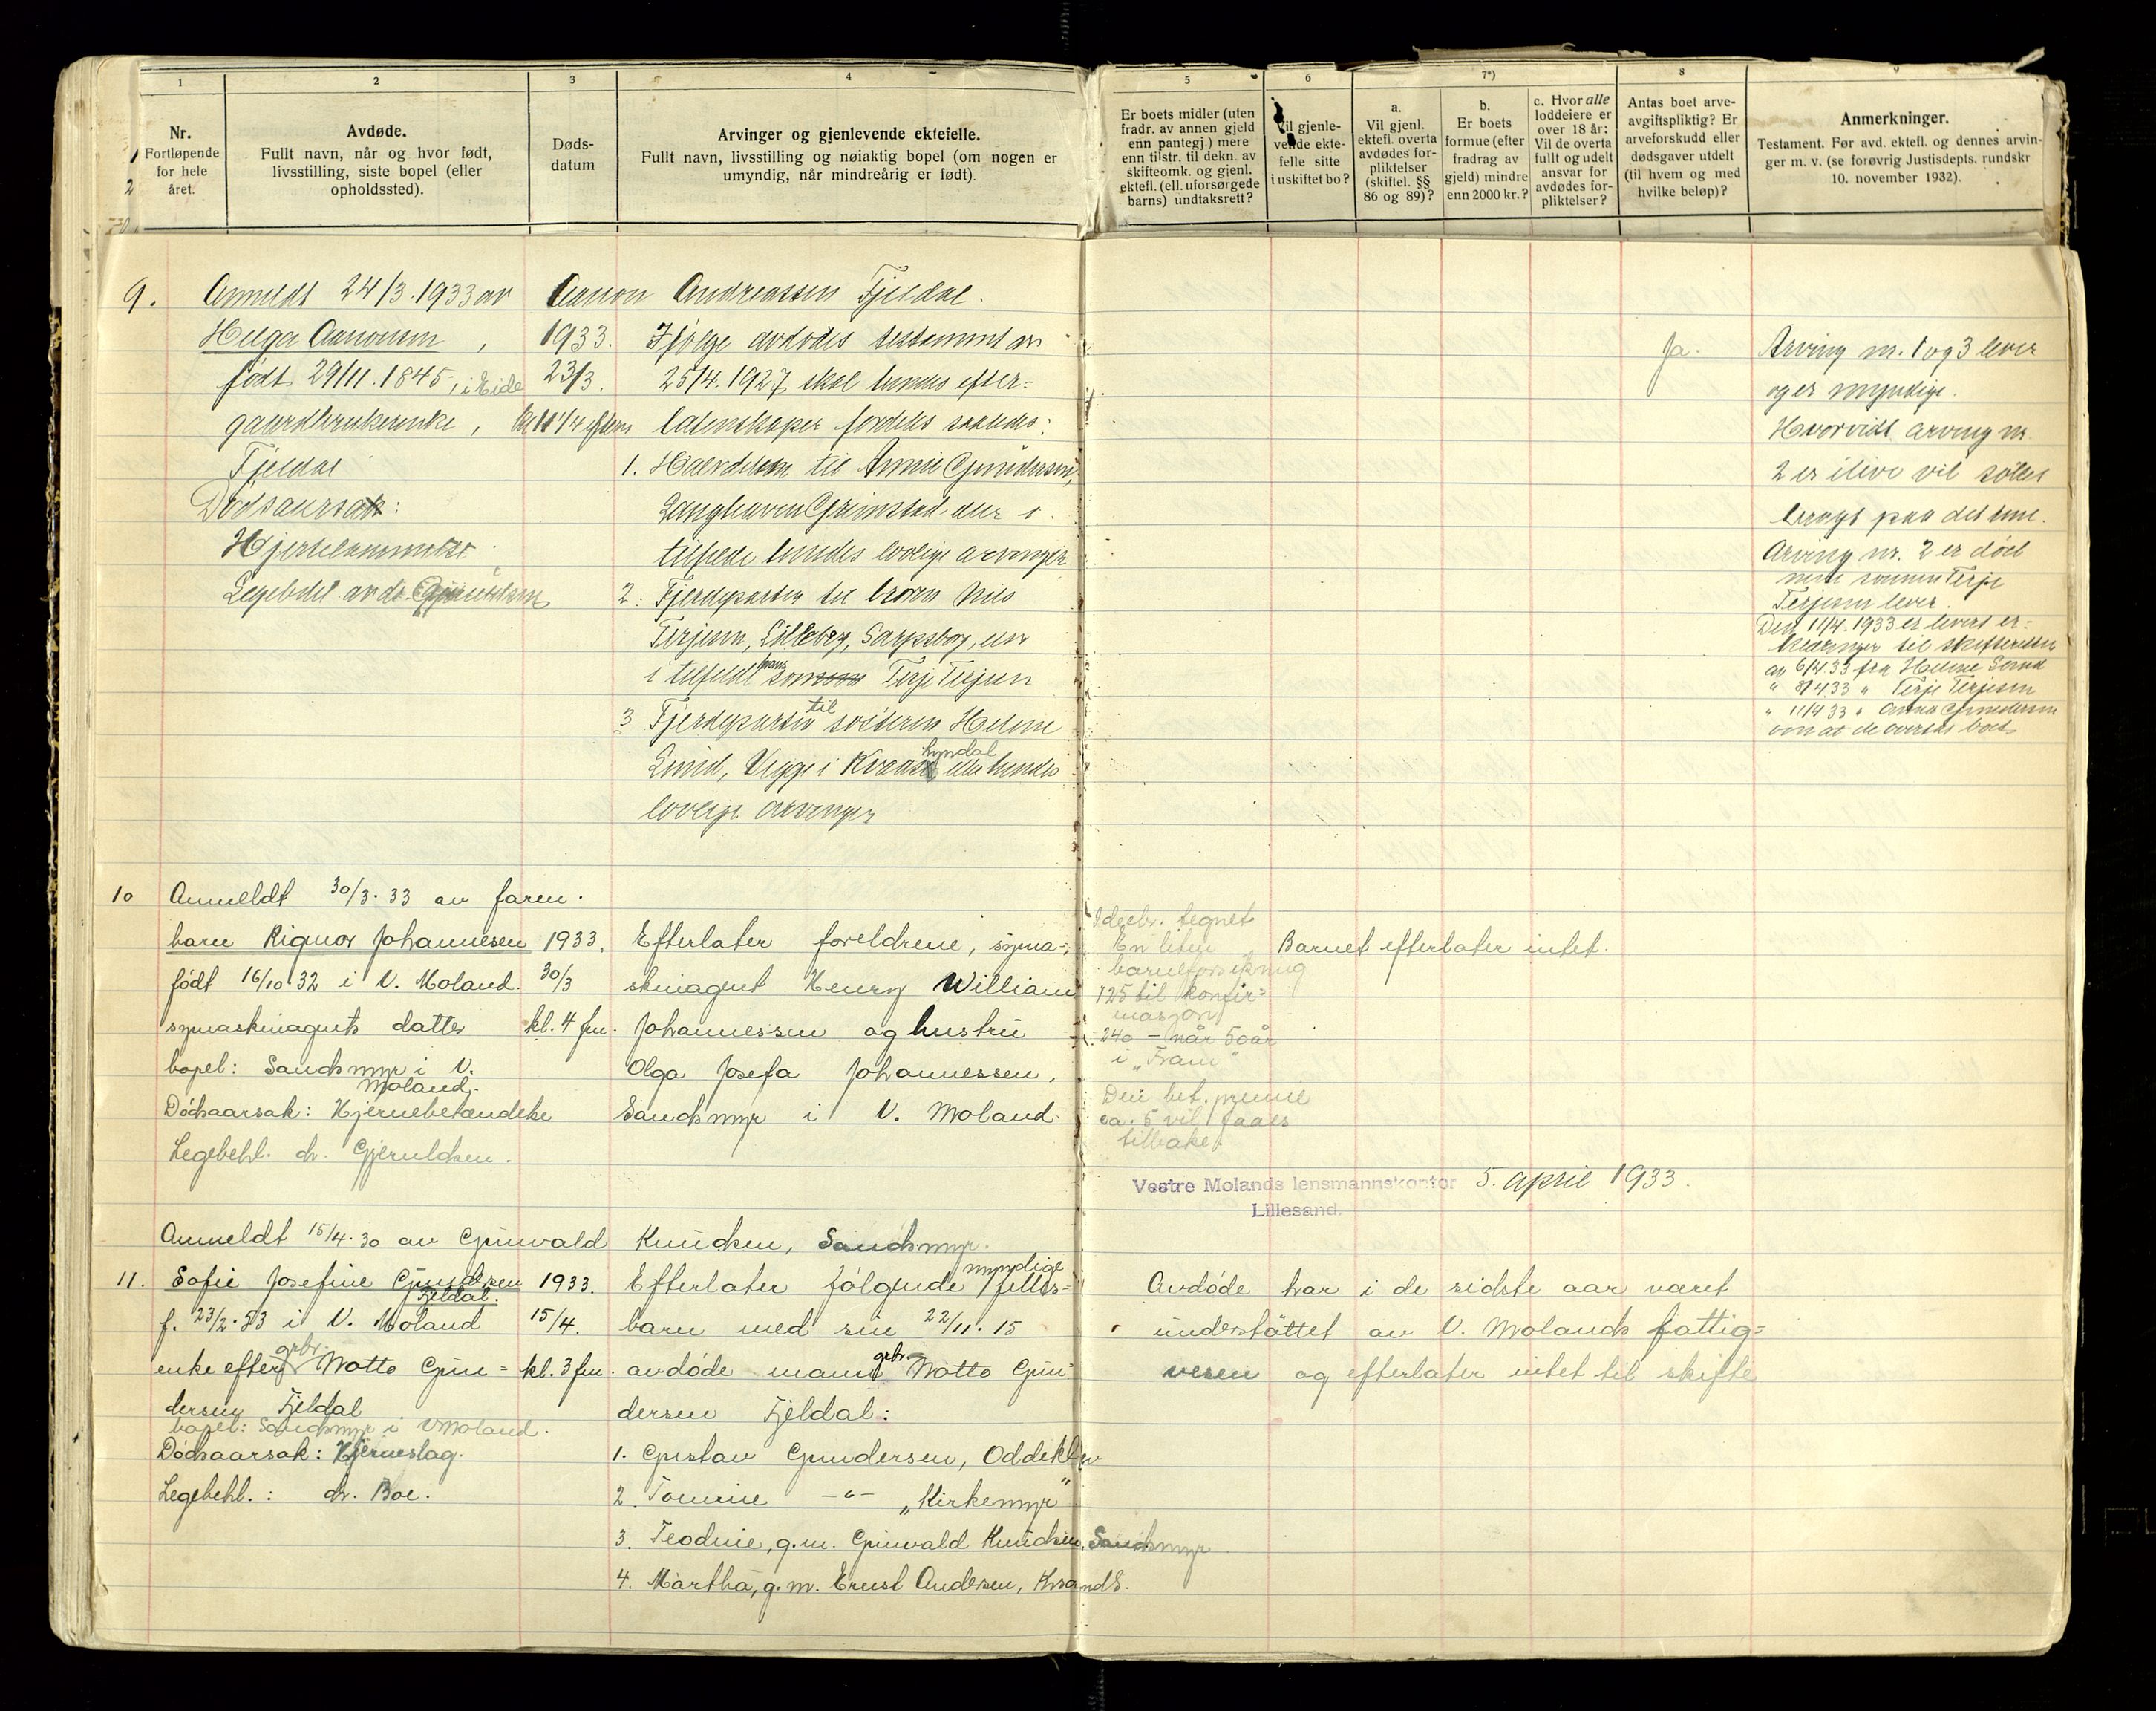 1
Nr.
Fortløpende
for hele
året.
2
Avdøde.
Fullt navn, når og hvor født,
livsstilling, siste bopel (eller
opholdssted).
3
Døds-
datum
4
Arvinger og gjenlevende ektefelle.
Fullt navn, livsstilling og nøiaktig bopel (om nogen er
umyndig, når mindreårig er født).
5
Er boets midler (uten
fradr. av annen gjeld
enn pantegj.) mere
enn tilstr. til dekn. av
skifteomk. og gjenl.
ektefl. (ell. uforsørgede
barns) undtaksrett?
6
Vil gjenle-
vende ekte-
felle sitte
i uskiftet bo?
7*)
a.
Vil gjenl.
ektefl. overta
avdødes for-
pliktelser
(skiftel. §§
86 og 89)?
b.
Er boets
formue (efter
fradrag av
gjeld) mindre
enn 2000 kr.?
c. Hvor alle
loddeiere er
over 18 år:
Vil de overta
fullt og udelt
ansvar for
avdødes for-
pliktelser?
8
Antas boet arve-
avgiftspliktig? Er
arveforskudd eller
dødsgaver utdelt
(til hvem og med
hvilke beløp)?
9
Anmerkninger.
Testament. Før avd. ektefl. og dennes arvin-
ger m. v. (se forøvrig Justisdepls. rundskr
10. november 1932).
9. Anmeldt 24/3.1933 av Aanon Andreassen Fjeldal.
Helga Aanonsen,
født 29/11.1845, i Eide
gaardbrukerenke,
Fjeldal
Dødsaarsak:
Legebeh. av dr. Gjeruldsen
1933.
23/3.
Ifølge avdødes testament av
25/4.1927 skal hendes efter-
latenskaper fordeles saaledes:
1. Halvdelen til Annie Gundersen,
Langhaven Grimstad eller i
tilfelde hendes lovlige arvinger
2. Fjerdeparten til broren Nils
Terjesen, Lilleby, Sarpsborg, eller
i tilfelde hans sønn Terje Terjesen
3 Fjerdeparten til søsteren Helene
Lund, Vegge i Kvam hyndal eller hendes
lovlige arvinger
Ja.
Arving nr. 1 og 3 lever
og er myndige.
Hvorvidt arving nr.
2 er ilive vil søkes
bragt paa det rene.
Arving nr. 2 er død
men sønnen Terje
Terjesen lever.
Den 11/4.1933 er levert er-
klæringer til skifteretten
av 6/4.33 fra Helene Lund
" 8/4.33 " Terje Terjesen
" 11/4 33 " Annie Gundersen
om at de overtar boet
10 Anmeldt 30/3.33 av faren.
barn Rigmor Johannesen
født 16/10 32 i V. Moland.
symaskinagents datter
bopel: Sandsmyr i V.
Moland.
Dødsaarsak: Hjernebetændelse
Legebehl. dr. Gjeruldsen.
1933.
30/3
kl. 4 fm.
Efterlater foreldrene, syma-
skinagent Henry William
Johannessen og hustru
Olga Josefa Johannessen,
Sandsmyr i V. Moland.
I decbr. tegnet
En liten
barneforsikring
125 til konfir-
masjon
240 – når 50 år
i "Fram"
Den bet. premie
ca. 5 vil faaes
tilbake.
Barnet efterlater intet.
Vestre Molands lensmannskontor 5. april 1933.
Lillesand.
Anmeldt 15/4.30 av Gunvald Knudsen, Sandsmyr.
11. Sofie Josefine Gundersen
Fjeldal.
f. 23/2.53 i V. Moland
enke efter grbr. Motto Gun-
dersen Fjeldal
bopel: Sandsmyr i V Moland.
Dødsaarsak: Hjerneslag.
Legebehl.: dr. Boe.
1933.
15/4.
kl. 3 fm.
Efterlater følgende myndige felles-
barn med sin 22/11.15
avdøde mann grbr. Motto Gun-
dersen Fjeldal:
1. Gustav Gundersen, Oddeklev
2. Tomine –"– "Kirkemyr"
3. Teodine, g.m. Gunvald Knudsen, Sandsmyr.
4. Martha, g.m. Ernst Andersen, Krsands.
Avdøde har i de sidste aar været
understøttet av V. Molands fattig-
vesen og efterlater intet til skifte